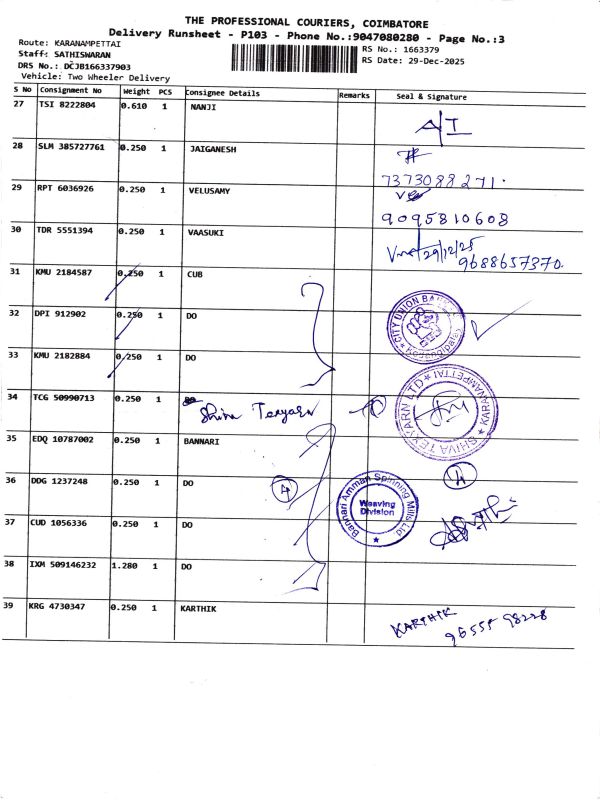 THE PROFESSIONAL COURIERS, COIMBATORE
Delivery Runsheet - P103 - Phone No.:9047080280 - Page No.:3
Route: KARANAMPETTAI
Staff: SATHISWARAN
DRS No.: DCJB166337903
Vehicle: Two Wheeler Delivery
RS No.: 1663379
RS Date: 29-Dec-2025
S No Consignment No Weight PCS Consignee Details Remarks Seal & Signature
27 TSI 8222804 0.610 1 NANJI
28 SLM 385727761 0.250 1 JAIGANESH
7373088271.
29 RPT 6036926 0.250 1 VELUSAMY
9095810608
30 TDR 5551394 0.250 1 VAASUKI
29/12/25
9688657370.
31 KMU 2184587 0.250 1 CUB
32 DPI 912902 0.250 1 DO
CITY UNION BANK
33 KMU 2182884 0.250 1 DO
34 TCG 50990713 0.250 1 Shiva Texyarn
SHIVA TEXYARN LTD ★ KARANAMPETTAI ★
35 EDQ 10787002 0.250 1 BANNARI
36 DDG 1237248 0.250 1 DO 4
Bannari Amman Spinning Mills Ltd
Weaving
Division
37 CUD 1056336 0.250 1 DO
38 IXM 509146232 1.280 1 DO
39 KRG 4730347 0.250 1 KARTHIK
KARTHIK
96555 98228